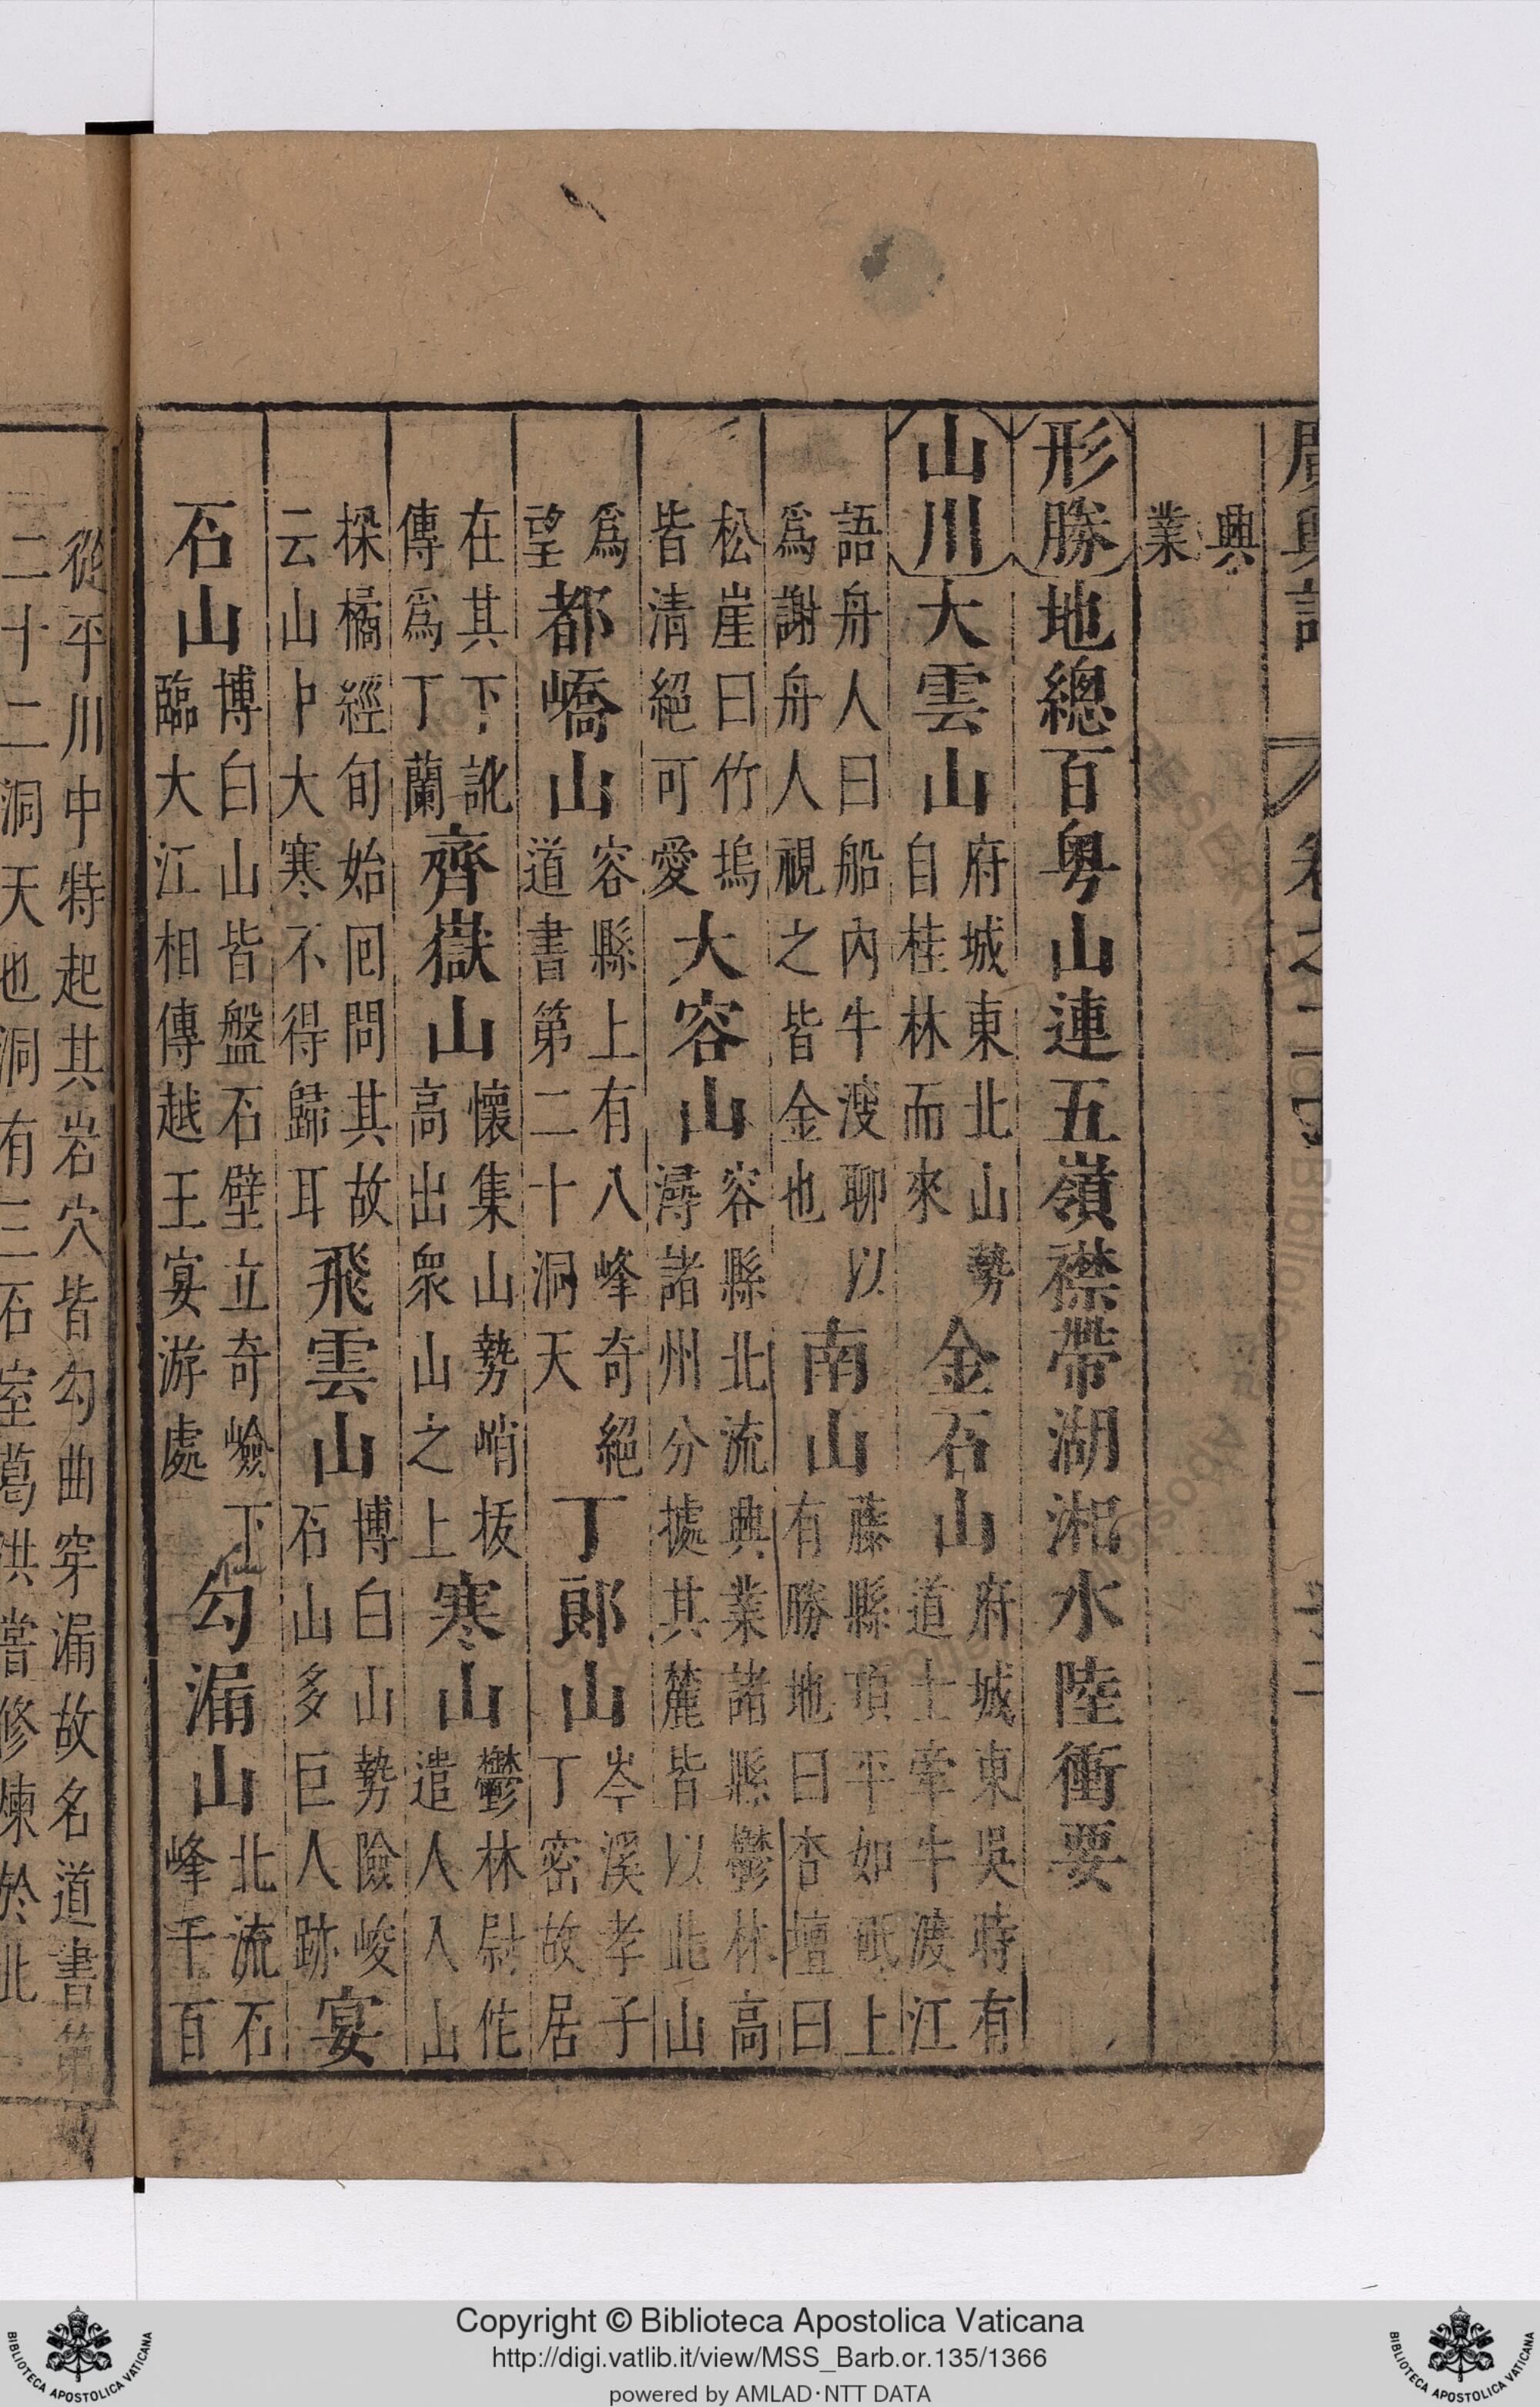 廣輿記 卷之二十
興
業
形勝地總百粵山連五嶺襟帶湖湘水陸衝要
山川大雲山府城東北山勢
自桂林而來金石山府城東吳時有
道士牽牛渡江
語舟人曰船內牛溲聊以
爲謝舟人視之皆金也南山藤縣頂平如砥上
有勝地曰杏壇曰
松崖曰竹塢
皆清絕可愛大容山容縣北流興業諸縣鬱林高
潯諸州分據其麓皆以此山
爲
望都嶠山容縣上有八峰奇絕
道書第二十洞天丁郎山岑溪孝子
丁密故居
在其下訛
傳爲丁蘭齊嶽山懷集山勢峭拔
高出衆山之上寒山鬱林尉佗
遣人入山
採橘經旬始囘問其故
云山中大寒不得歸耳飛雲山博白山勢險峻
石山多巨人跡宴
石山博白山皆盤石壁立奇嶮下
臨大江相傳越王宴游處勾漏山北流石
峰千百
從平川中特起其岩穴皆勾曲穿漏故名道書第
二十二洞天也洞有三石室葛洪嘗修煉於此
Copyright © Biblioteca Apostolica Vaticana
http://digi.vatlib.it/view/MSS_Barb.or.135/1366
powered by AMLAD·NTT DATA
BIBLIOTECA APOSTOLICA VATICANA
BIBLIOTECA APOSTOLICA VATICANA